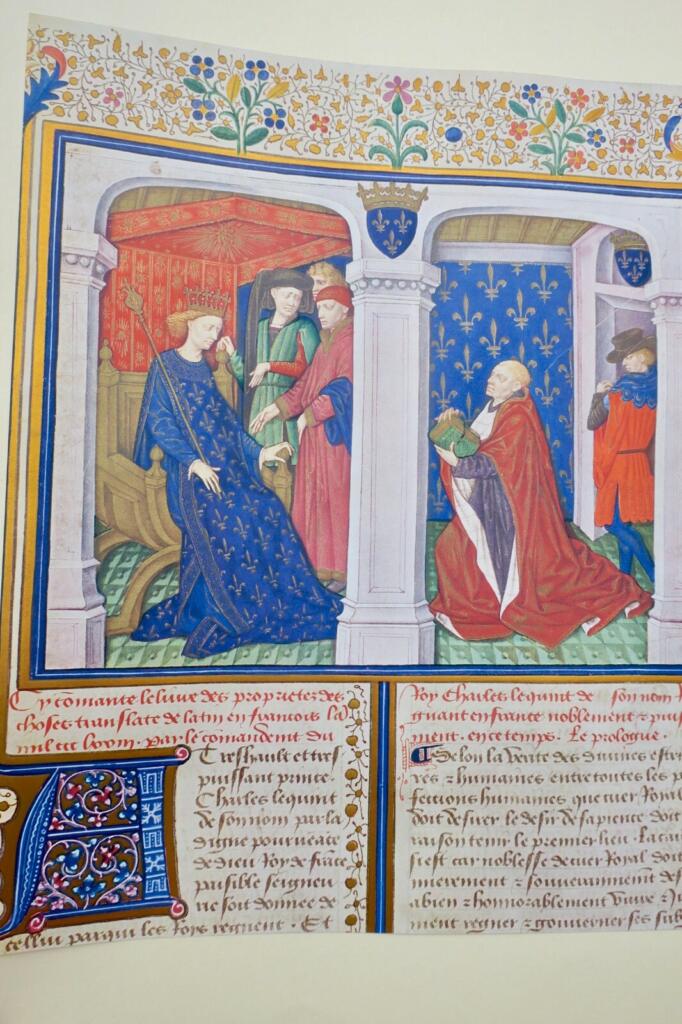 Cy cōmance le livre des proprietez des
choses translate de latin en francois lā
mil ccc lxxii. par le comandemēt du
Treshault et tres
puissant prince
Charles le quint
de son nom par la
digne pourveāce
de dieu Roy de frāce
paisible seigneu
rie soit donnee de
cellui par qui les Roys regnent. Et
Roy Charles le quint de son nom R
gnant en france noblement & puis
ment. en ce temps. Le prologue.
Selon la verite des divines escri
res & humaines entre toutes les p
fections humaines que cuer Royal
doit desirer le desir de sapience doit
raison tenir le premier lieu. La cau
si est car noblesse de cuer Royal doit
mierement & souverainnement des
a bien & honnorablement vivre &
ment regner & gouverner ses sub